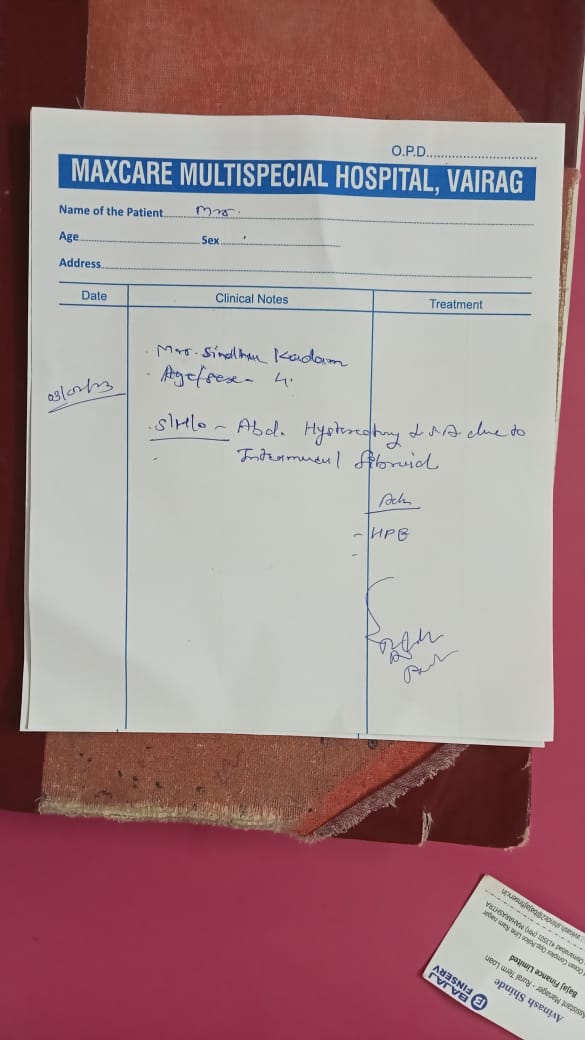 O.P.D.
MAXCARE MULTISPECIAL HOSPITAL, VAIRAG
Name of the Patient Mrs.
Age Sex
Address
Date Clinical Notes Treatment
Mrs. Sindhu Kadam
Age/sex - 4
S/H/o - Abd. Hysterectomy & due to
Intramural fibroid
Adv
- HPE
BAJAJ
FINSERV
Avinash Shinde
Assistant Manager - Rural Term Loan
Bajaj Finance Limited